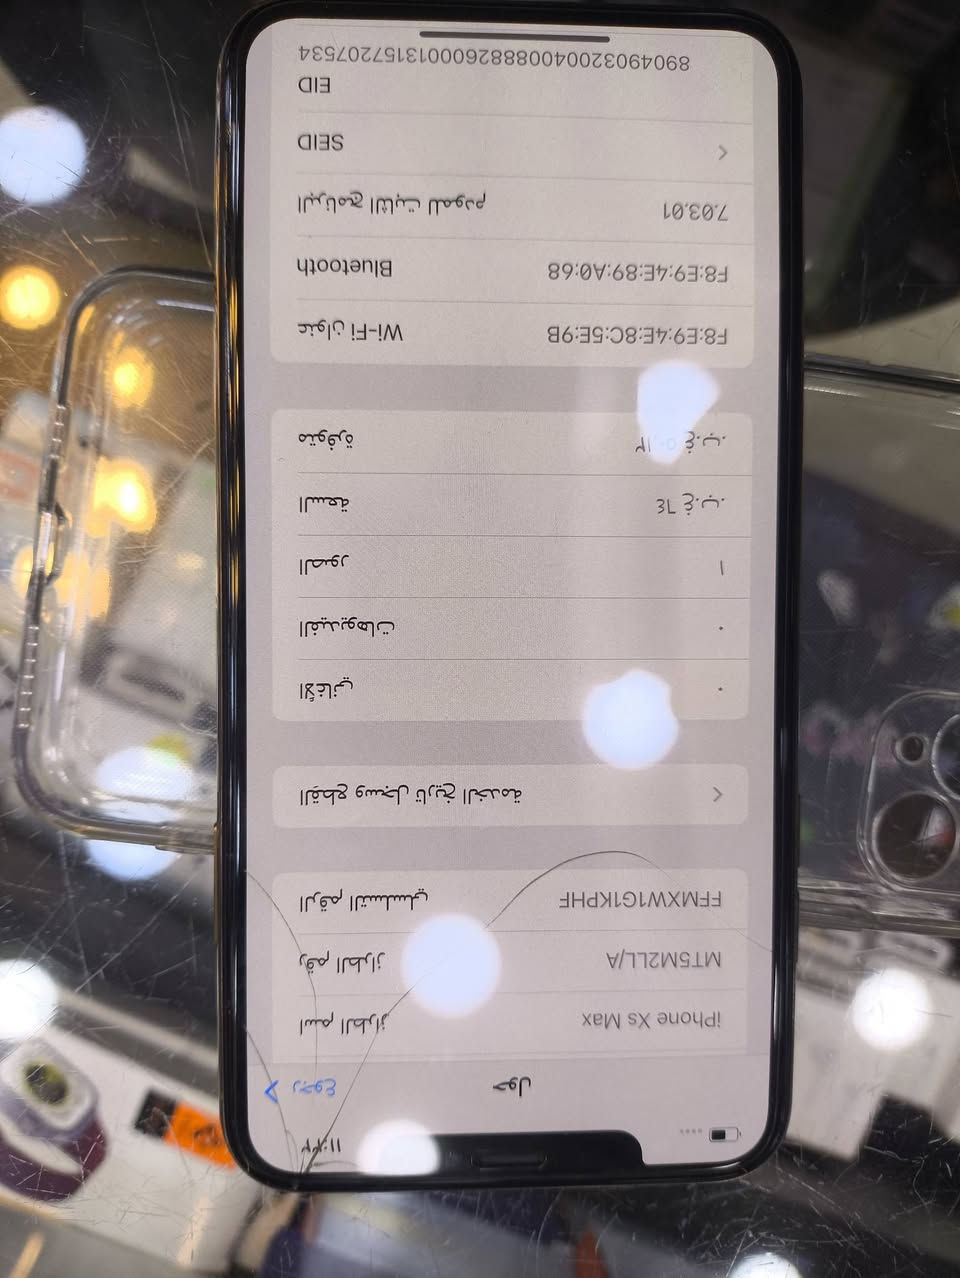 ١١:٢٢
رجوع
حول
اسم الطراز iPhone Xs Max
رقم الطراز MT5M2LL/A
الرقم التسلسلي FFMXW1G1KPHF
القطع وسجل تاريخ الخدمة
الأغاني ٠
الفيديوهات ٠
الصور ١
السعة ٦٤ غ.ب.
متوفرة غ.ب.
عنوان Wi-Fi F8:E9:4E:8C:5E:9B
Bluetooth F8:E9:4E:89:A0:68
البرنامج الثابت للمودم 7.03.01
SEID
EID
89049032004008882600013157207534